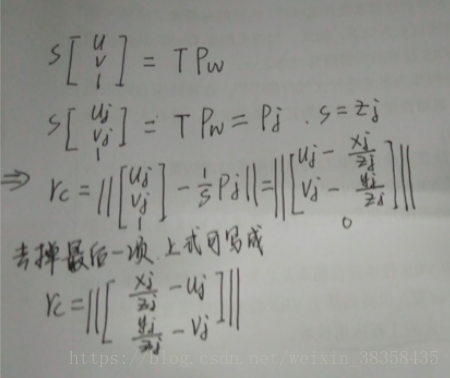 s[u v 1] = T Pw
s[uj vj 1] = T Pw = Pj . s = zj
⇒ rc = ||[uj vj 1] - 1/s Pj|| = ||[uj - xj/zj vj - yj/zj 0]||
去掉最后一项 上式可写成
rc = ||[xj/zj - uj yj/zj - vj]||
https://blog.csdn.net/weixin_38358435